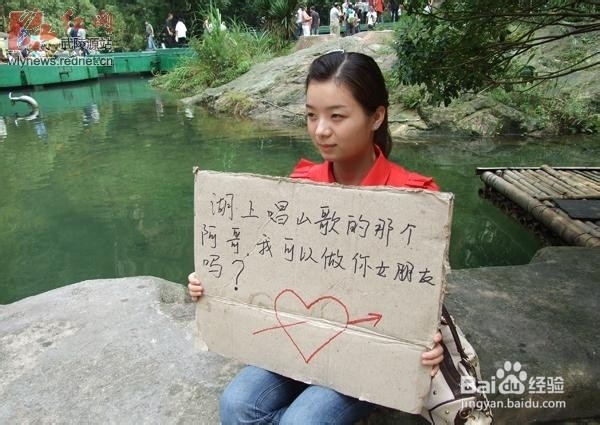 红网
武陵源站
wlynews.rednet.cn
湖上唱山歌的那个
阿哥,我可以做你女朋友
吗?
Baidu 经验
jingyan.baidu.com